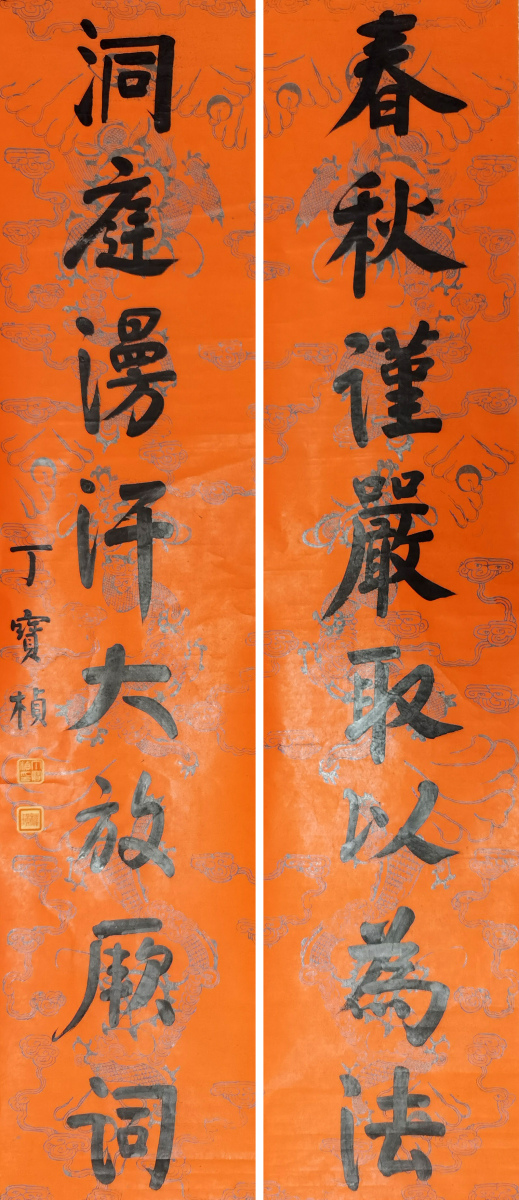 春秋謹嚴取以為法
洞庭漫汗大放厥词
丁寶楨